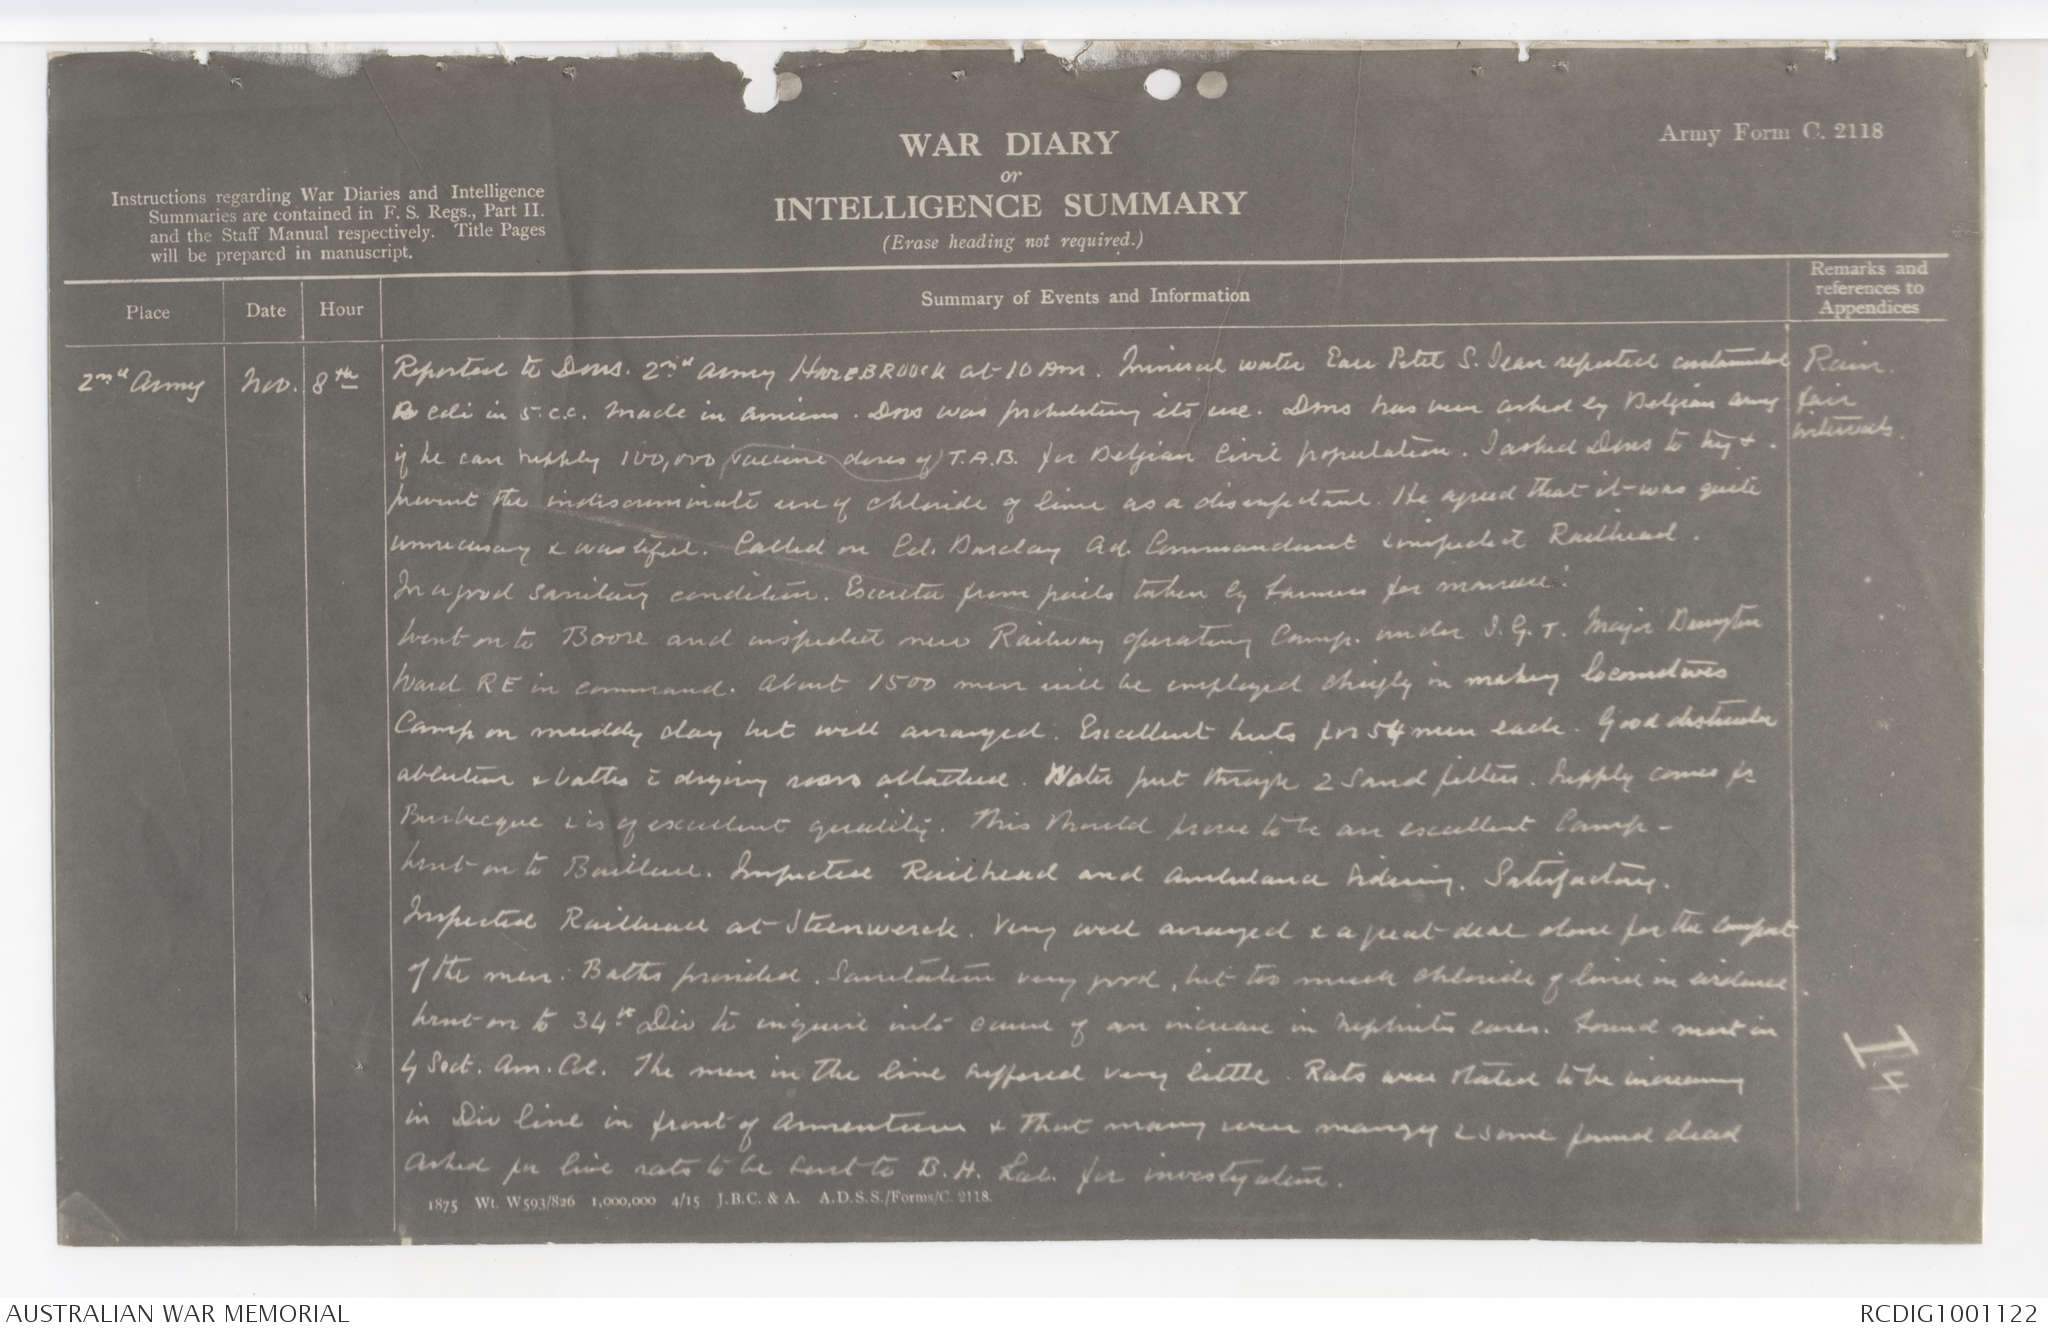 WAR DIARY
or
INTELLIGENCE SUMMARY
(Erase heading not required.)
Army Form C. 2118
Instructions regarding War Diaries and Intelligence
Summaries are contained in F. S. Regs., Part II.
and the Staff Manual respectively. Title Pages
will be prepared in manuscript.
Place
Date
Hour
Summary of Events and Information
Remarks and
references to
Appendices
2nd Army
Nov.
8th
Reported to Dms. 2nd Army HAZEBROUCK at 10 AM. Mineral water Eau Petit S. Jean reported contaminated
B coli in 5.c.c. Made in Amiens. Dms was prohibiting its use. Dms has been asked by Belgian army
if he can supply 100,000 vaccine doses of T.A.B. for Belgian Civil population. I asked Dms to try &
prevent the indiscriminate use of chloride of lime as a disinfectant. He agreed that it was quite
unnecessary & wasteful. Called on Col. Barclay Ad. Commandant & inspected Railhead.
In a good sanitary condition. Excreta from pails taken by farmers for manure.
Went on to Boore and inspected new Railway operating Camp. under I.G.T. Major
Ward RE in command. About 1500 men will be employed chiefly in making locomotives
Camp on muddy clay but well arranged. Excellent huts for 54 men each. Good destructor
ablution & baths c drying room attached. Water put through 2 Sand filters. Supply comes fr
Burbecque & is of excellent quality. This should prove to be an excellent Camp -
Went on to Bailleul. Inspected Railhead and Ambulance Siding. Satisfactory.
Inspected Railhead at Steenwerck. Very well arranged & a great deal done for the comfort
of the men. Baths provided. Sanitation very good, but too much chloride of lime in evidence.
Went on to 34th Div to inquire into cause of an increase in Nephritis cases. Found most in
by Sect. Am. Col. The men in the line suffered very little. Rats were stated to be increasing
in Div line in front of Armentieres & that many were mangy & some found dead
Asked for live rats to be sent to B.H. Lab. for investigation.
Rain.
fair
intervals.
14
1875 Wt. W593/826 1,000,000 4/15 J.B.C. & A. A.D.S.S./Forms/C. 2118.
AUSTRALIAN WAR MEMORIAL
RCDIG1001122